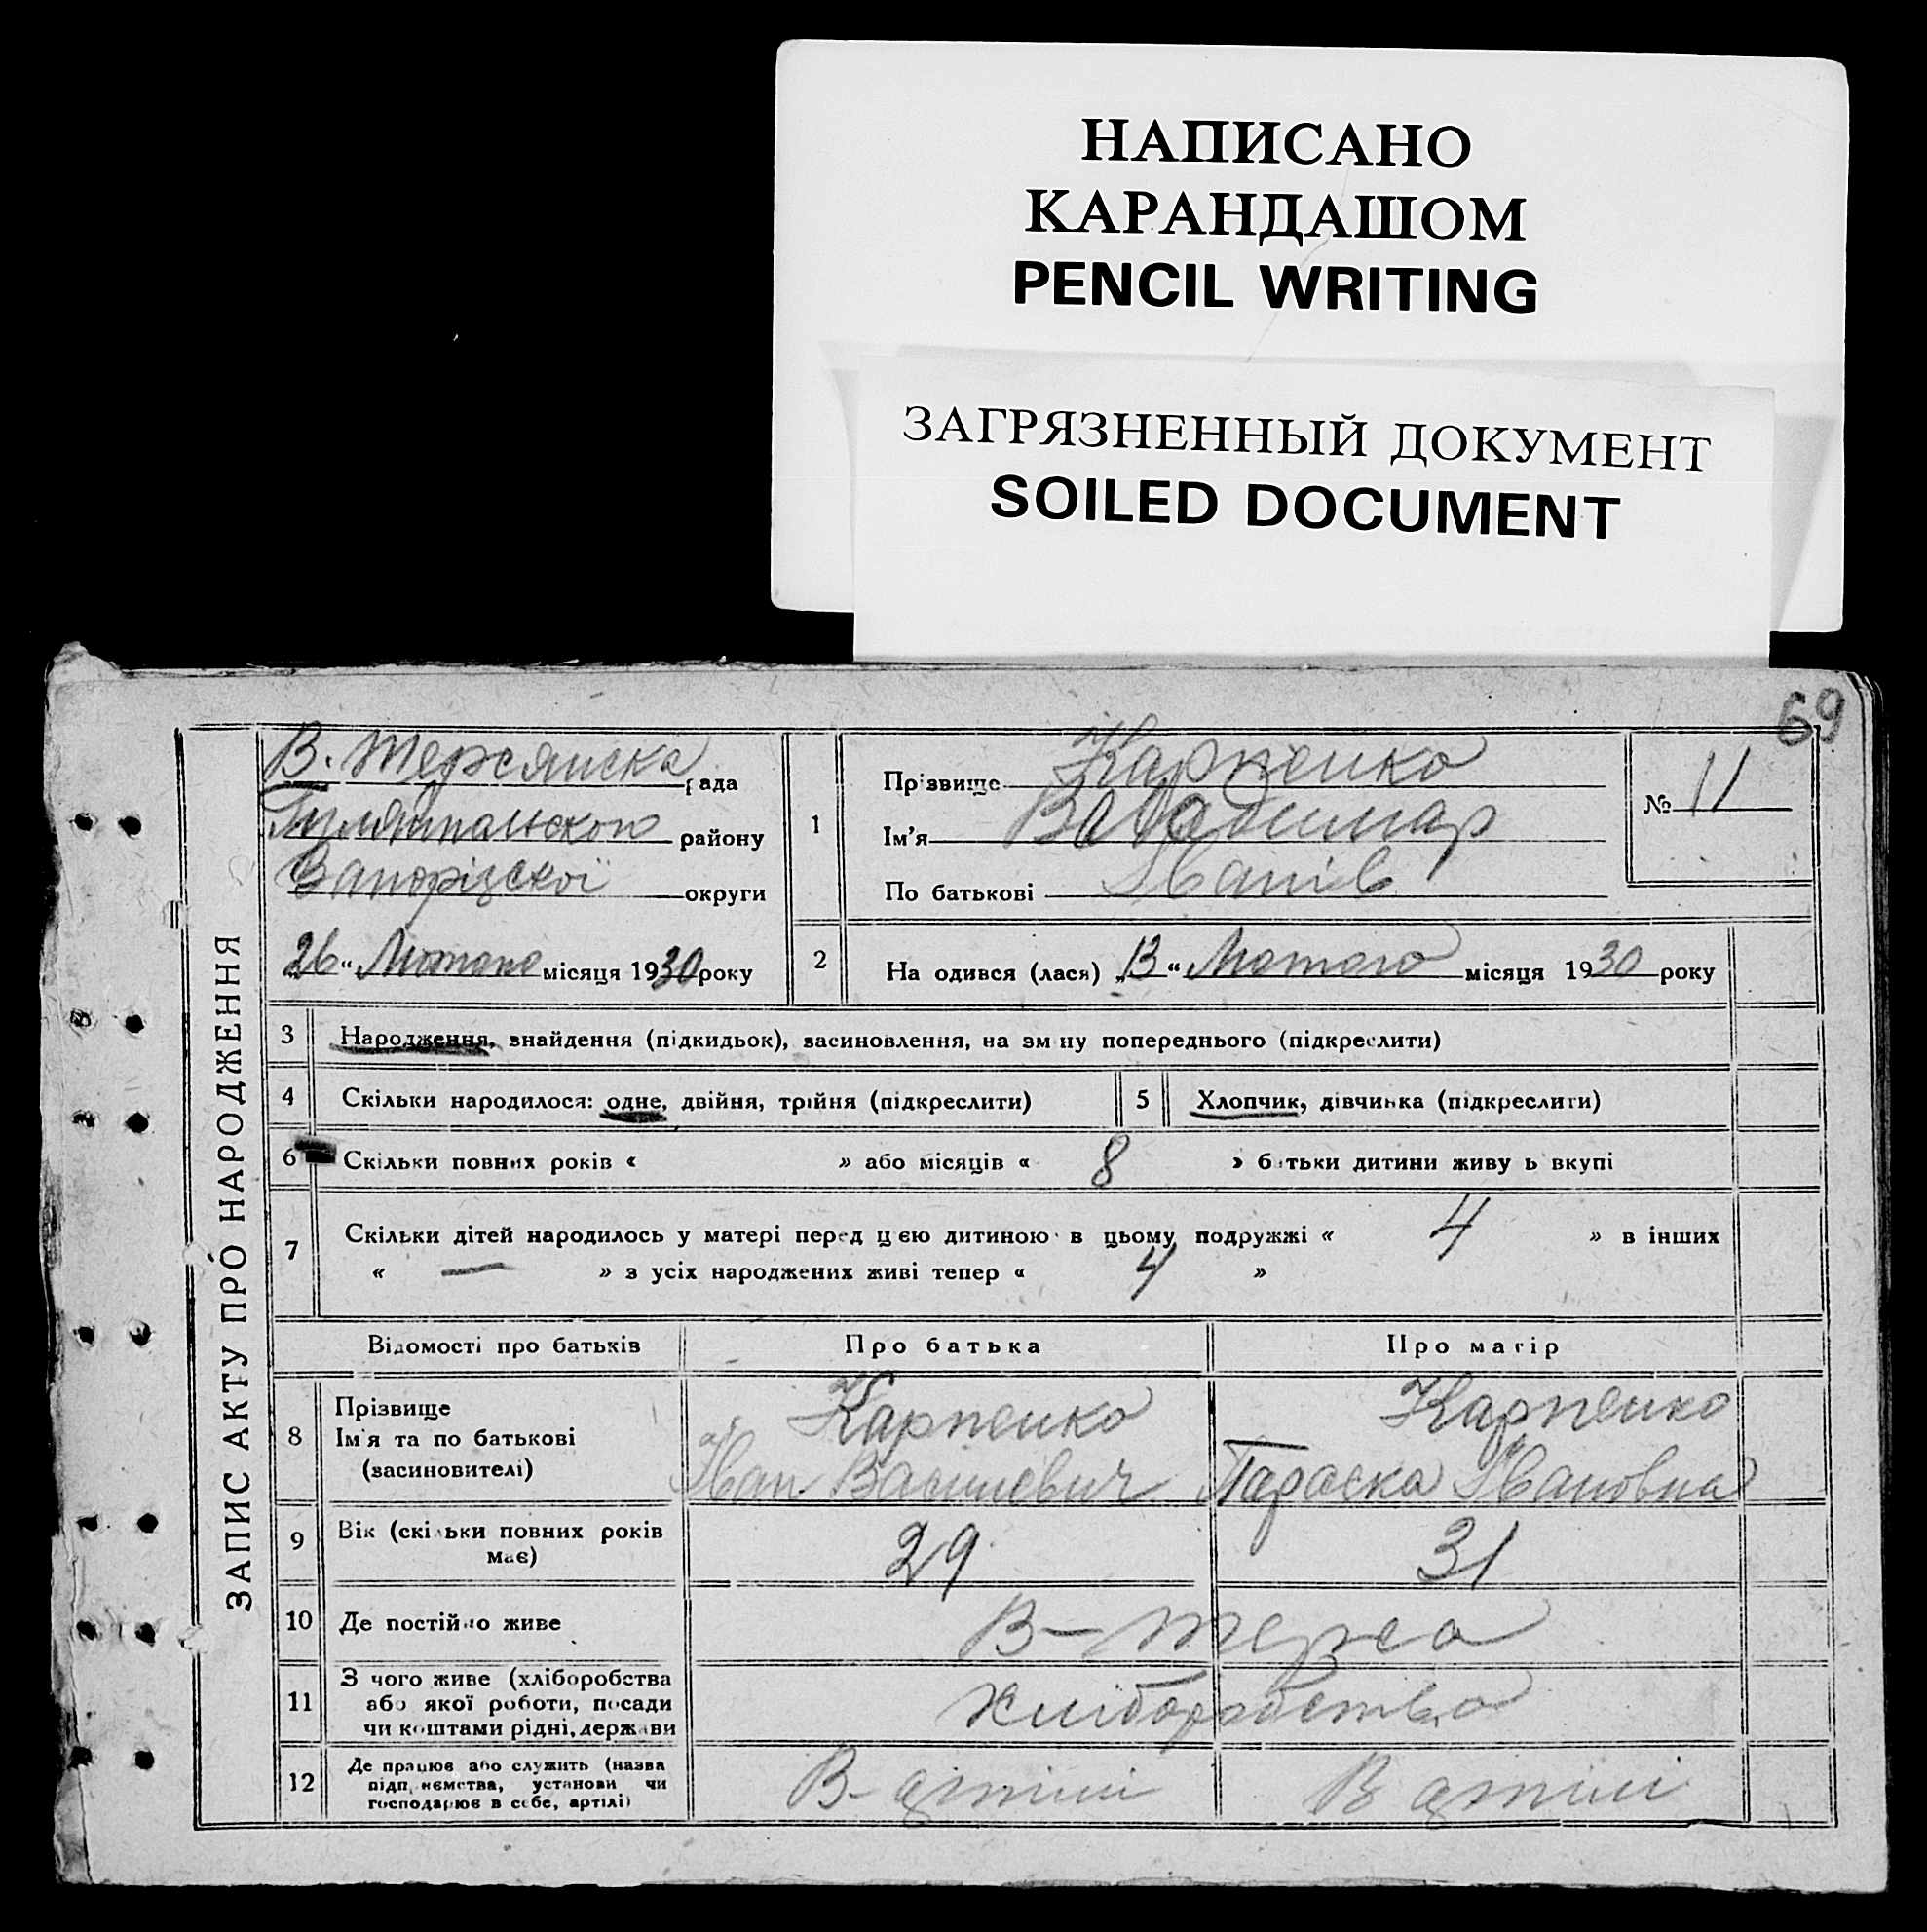 НАПИСАНО
КАРАНДАШОМ
PENCIL WRITING
ЗАГРЯЗНЕННЫЙ ДОКУМЕНТ
SOILED DOCUMENT
69
ЗАПИС АКТУ ПРО НАРОДЖЕННЯ
В. Терсянска рада
Гуляйпольского району
Запорізскої округи
26 " Лютого місяця 1930 року
1
Прізвище Карпенко
Ім'я Владимир
По батькові Іванів
№ 11
2 На одився (лася) „13 " Лютого місяця 1930 року
3 Народження, знайдення (підкидьок), засиновлення, на зм ну попереднього (підкреслити)
4 Скільки народилося: одне, двійня, трійня (підкреслити) 5 Хлопчик, дівчинка (підкреслити)
6 Скільки повних років « » або місяців « 8 » батьки дитини живу ь вкупі
7 Скільки дітей народилось у матері перед цією дитиною в цьому подружжі « 4 » в інших
« — » з усіх народжених живі тепер « 4 »
Відомості про батьків Про батька Про матір
8 Прізвище
Ім'я та по батькові
(засиновителі)
Карпенко
Іван Василевич
Карпенко
Параска Івановна
9 Вік (скільки повних років
має)
29 31
10 Де постійно живе В-Терса
11 З чого живе (хліборобства
або якої роботи, посади
чи коштами рідні, держави
Хліборобство
12 Де працює або служить (назва
підпрнємства, установи чи
господарює в себе, артілі)
В-артілі В артілі